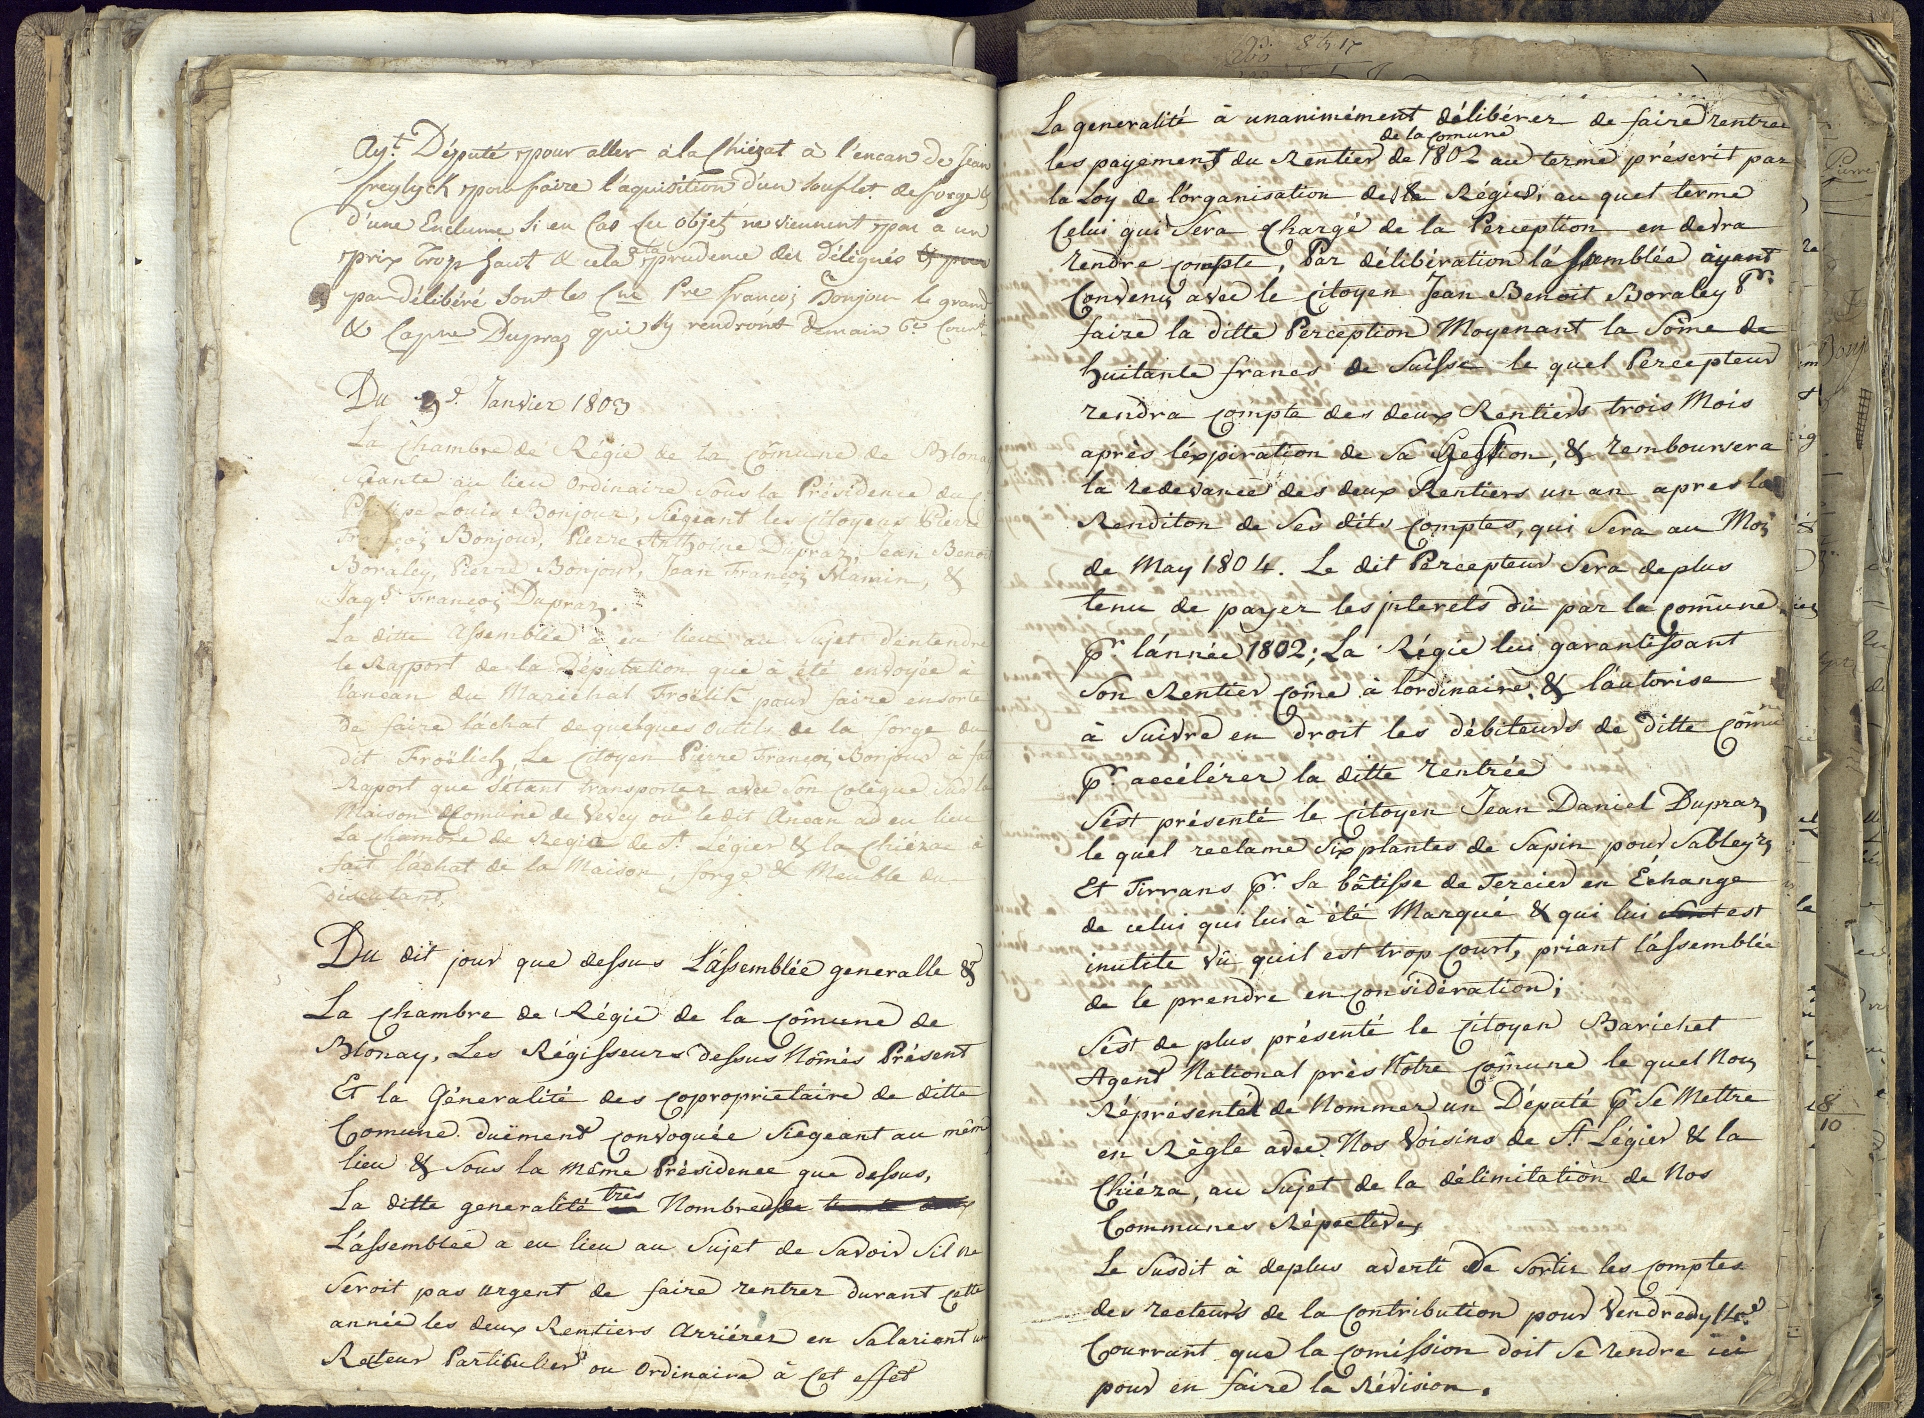 Ayt. Député pour aller à la Chiézat à l'encan de Jean
freylyck pour faire l'aquisition d'un souflet de forge &
d'une Enclume si en Cas su objet ne viennent pas a un
prix trop haut & cela prudence des délégués & pour
par délibéré sont les Cns Pre françoi Bonjour le grand
& Capne Dupraz qui sy rendront demain 6e Court
Du 9d. Janvier 1803
La Chambre de Régie de la Cômune de Blonay
séante au lieu ordinaire sous la Présidence du C.
Philipe Louis Bonjour, siégeant les Citoyens Pierre
François Bonjour, Pierre Anthoine Dupraz, Jean Benoit
Boraley, Pierre Bonjour, Jean François Mamin, &
Jaqs. François Dupraz.
La ditte Assemblée a eu lieu au sujet d'entendre
le Rapport de la Députation que à été envoyée à
lancan du Maréchal Froëlich pour faire ensorte
de faire láchat de quelques outils de la forge du
dit Froëlich, Le Citoyen Pierre François Bonjour à fait
Raport que sétant transporter avec son colègue sur la
Maison Comune de Vevey ou le dit Ancan ad eu lieu
La Chambre de Regie de St. Légier & la Chiéza à
fait láchat de la Maison, forge & Meuble du
discutant.
Du dit jour que dessus L'assemblée generalle &
La Chambre de Régie de la Cômune de
Blonay, Les Régisseurs dessus Només Présent
Et la Géneralité des Copropriétaire de ditte
Comune duëment Convoquée Siegeant au mêm
lieu & sous la même Présidence que dessus,
La ditte generalité tres Nombreuse
L'assemblée a eu lieu au Sujet de Savoir Sil ne
Seroit pas urgent de faire rentrer durant cette
année les deux Rentiers Arriérez en Salariant un
Recteur Particulier ou Ordinaire à Cet effet
La generalité à unanimément délibérer de faire rentrer
de la Comune
les payement du Rentier de 1802 au terme préscrit par
la Loy de l'organisation de la Régie; au quel terme
Celui qui Sera Chargé de la Perception en devra
rendre Compte, Par délibération lássemblée áyant
Convenu avec le Citoyen Jean Benoit Boraley Pr.
faire la ditte Perception Moyenant la Sôme de
huitante francs de Suisse le quel Percepteur
rendra Compte des deux Rentiers trois Mois
après l'éxpiration de Sa Gestion, & remboursera
la redevance des deux Rentiers un an apres la
Renditon de Ses dits Comptes, qui Sera au Moi
de May 1804. Le dit Percepteur Sera deplus
tenu de payer les jnterets dû par la Comune
pr. lánnée 1802; La Régie lui garantissant
Son Rentier Côme à lordinaire, & láutorise
à Suivre en droit les débiteurs de ditte Comune
pr. accélérer la ditte rentrée
Sést présenté le Citoyen Jean Daniel Dupraz
le quel reclame Six plantes de Sapin pour Sableyrs
Et Tirrans pr. Sa bâtisse de Tercier en Échange
de celui qui lui à été Marqué & qui lui sont est
inutile vû quil est trop Court, priant lássemblée
de le prendre en Considération;
Sést de plus présenté le Citoyen Barichet
Agent National près Notre Comune le quel Nou
Réprésentet de Nommer un Député pr Se Mettre
en Règle avec Nos Voisins de St. Légier & la
Chiéza, au Sujet de la délimitation de Nos
Communes Répectives
Le Susdit à deplus averti de Sortir les Comptes
des recteurs de la Contribution pour Vendredy 14e.
Courrant que la Comission doit Se rendre ici
pour en faire la Révision.